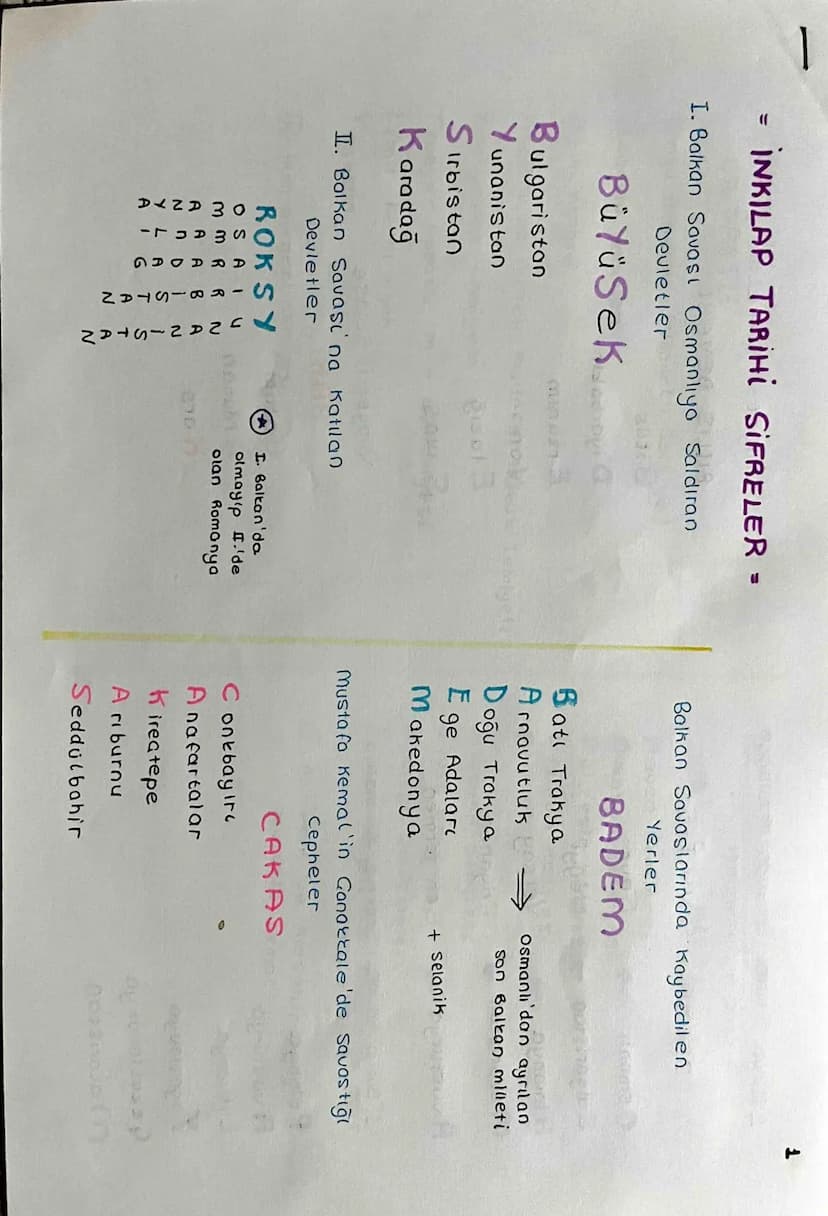 1
= İNKILAP TARİHİ SİFRELER =
I. Balkan Savası Osmanlıya Saldıran
Devletler
BüYüSeK
Bulgaristan
Yunanistan
Sırbistan
Karadağ
II. Balkan Savası'na Katılan
Devletler
ROKSY
O S A I U
M M R R N
A A A B A
N N D İ N
Y L A S İ
A I G T S
A T
N A
N
I. Balkan'da
olmayıp II.'de
olan Romanya
Balkan Savaslarında Kaybedilen
Yerler
BADEM
Batı Trakya
Arnavutluk ⇒ Osmanlı'dan ayrılan
son Balkan milleti
Doğu Trakya
Ege Adaları
Makedonya + Selanik
Mustafa Kemal'in Canakkale'de Savastığı
Cepheler
CAKAS
Conkbayırı
Anafartalar
Kireçtepe
Arıburnu
Seddülbahir